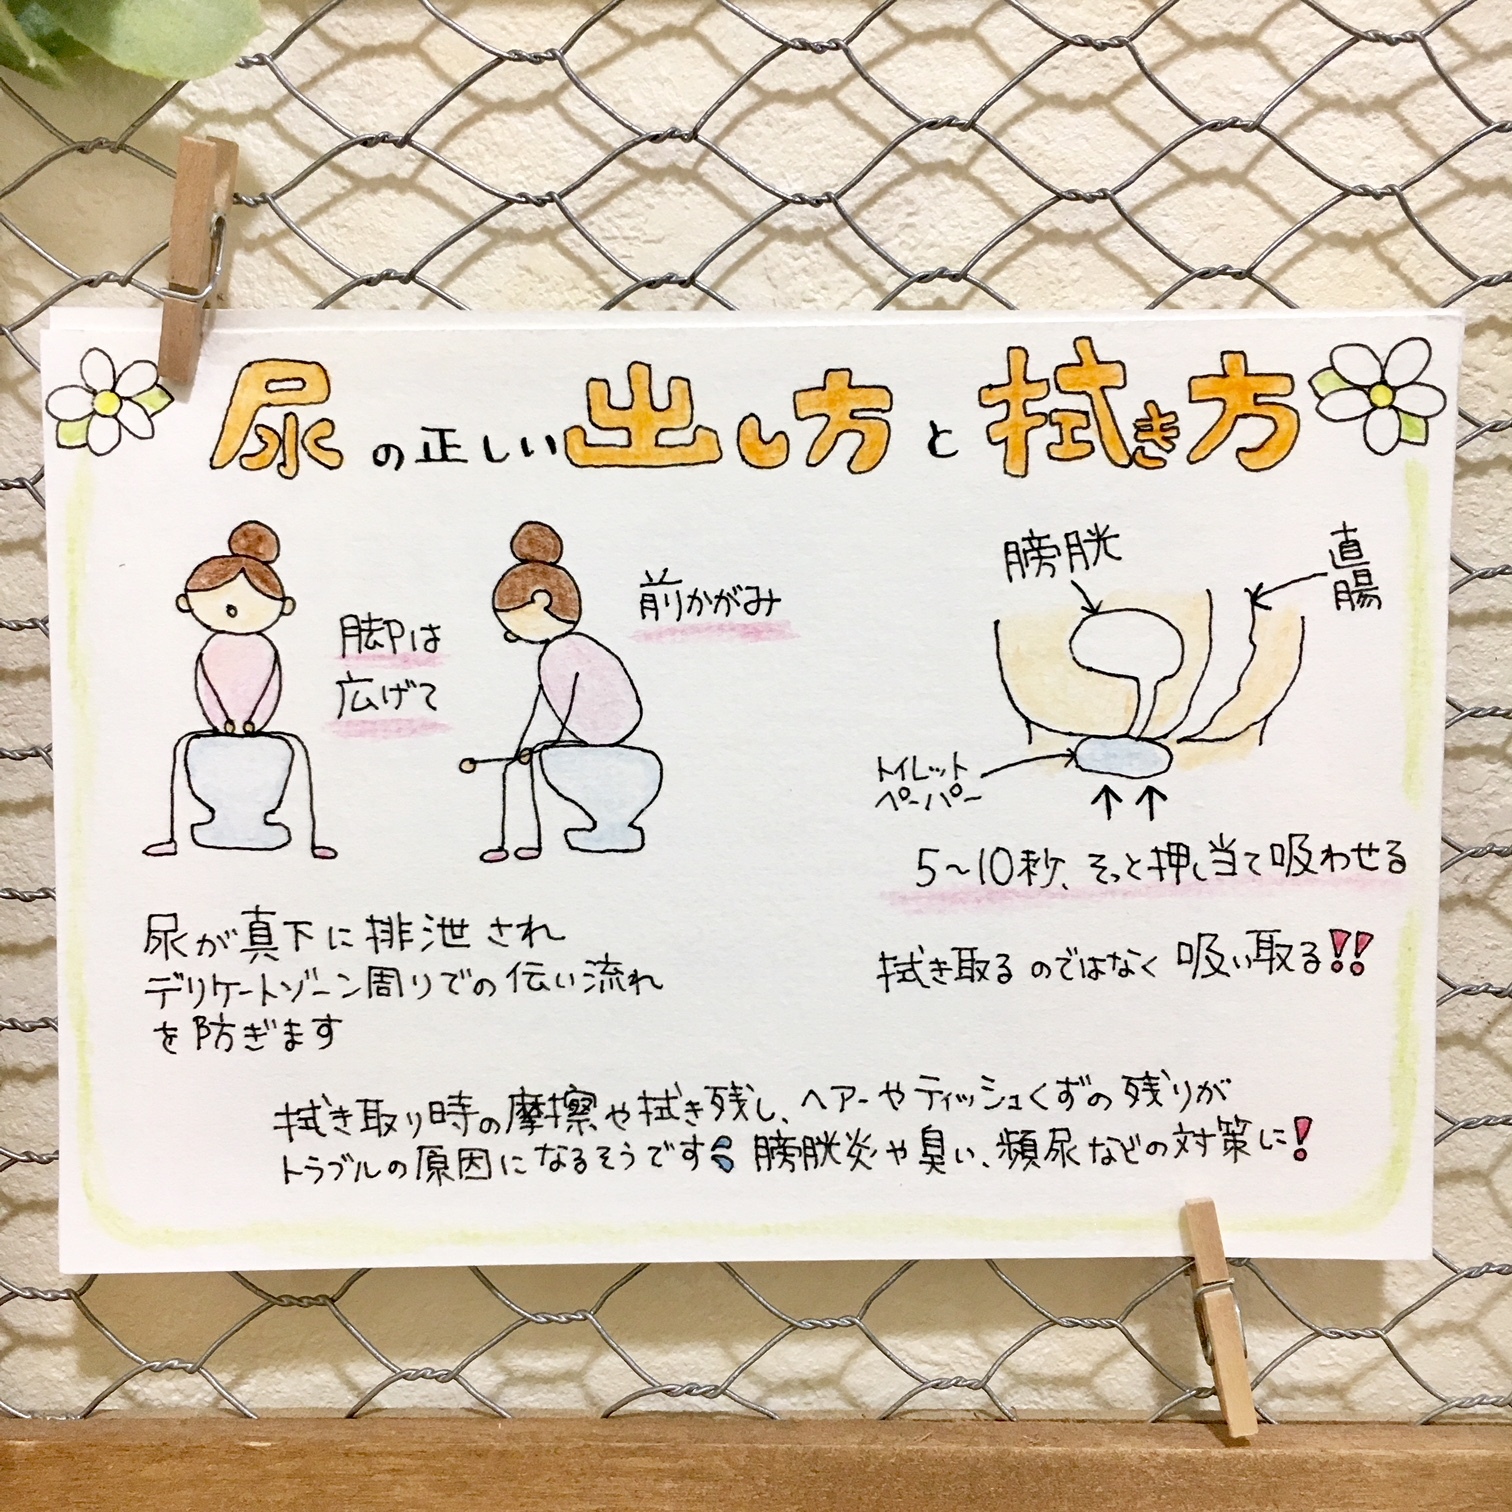 尿の正しい出し方と拭き方
脚は
広げて
前かがみ
膀胱
直腸
トイレット
ペーパー
5〜10秒、そっと押し当て吸わせる
尿が真下に排泄され
デリケートゾーン周りでの伝い流れ
を防ぎます
拭き取るのではなく吸い取る!!
拭き取り時の摩擦や拭き残し、ヘアーやティッシュくずの残りが
トラブルの原因になるそうです 膀胱炎や臭い、頻尿などの対策に!